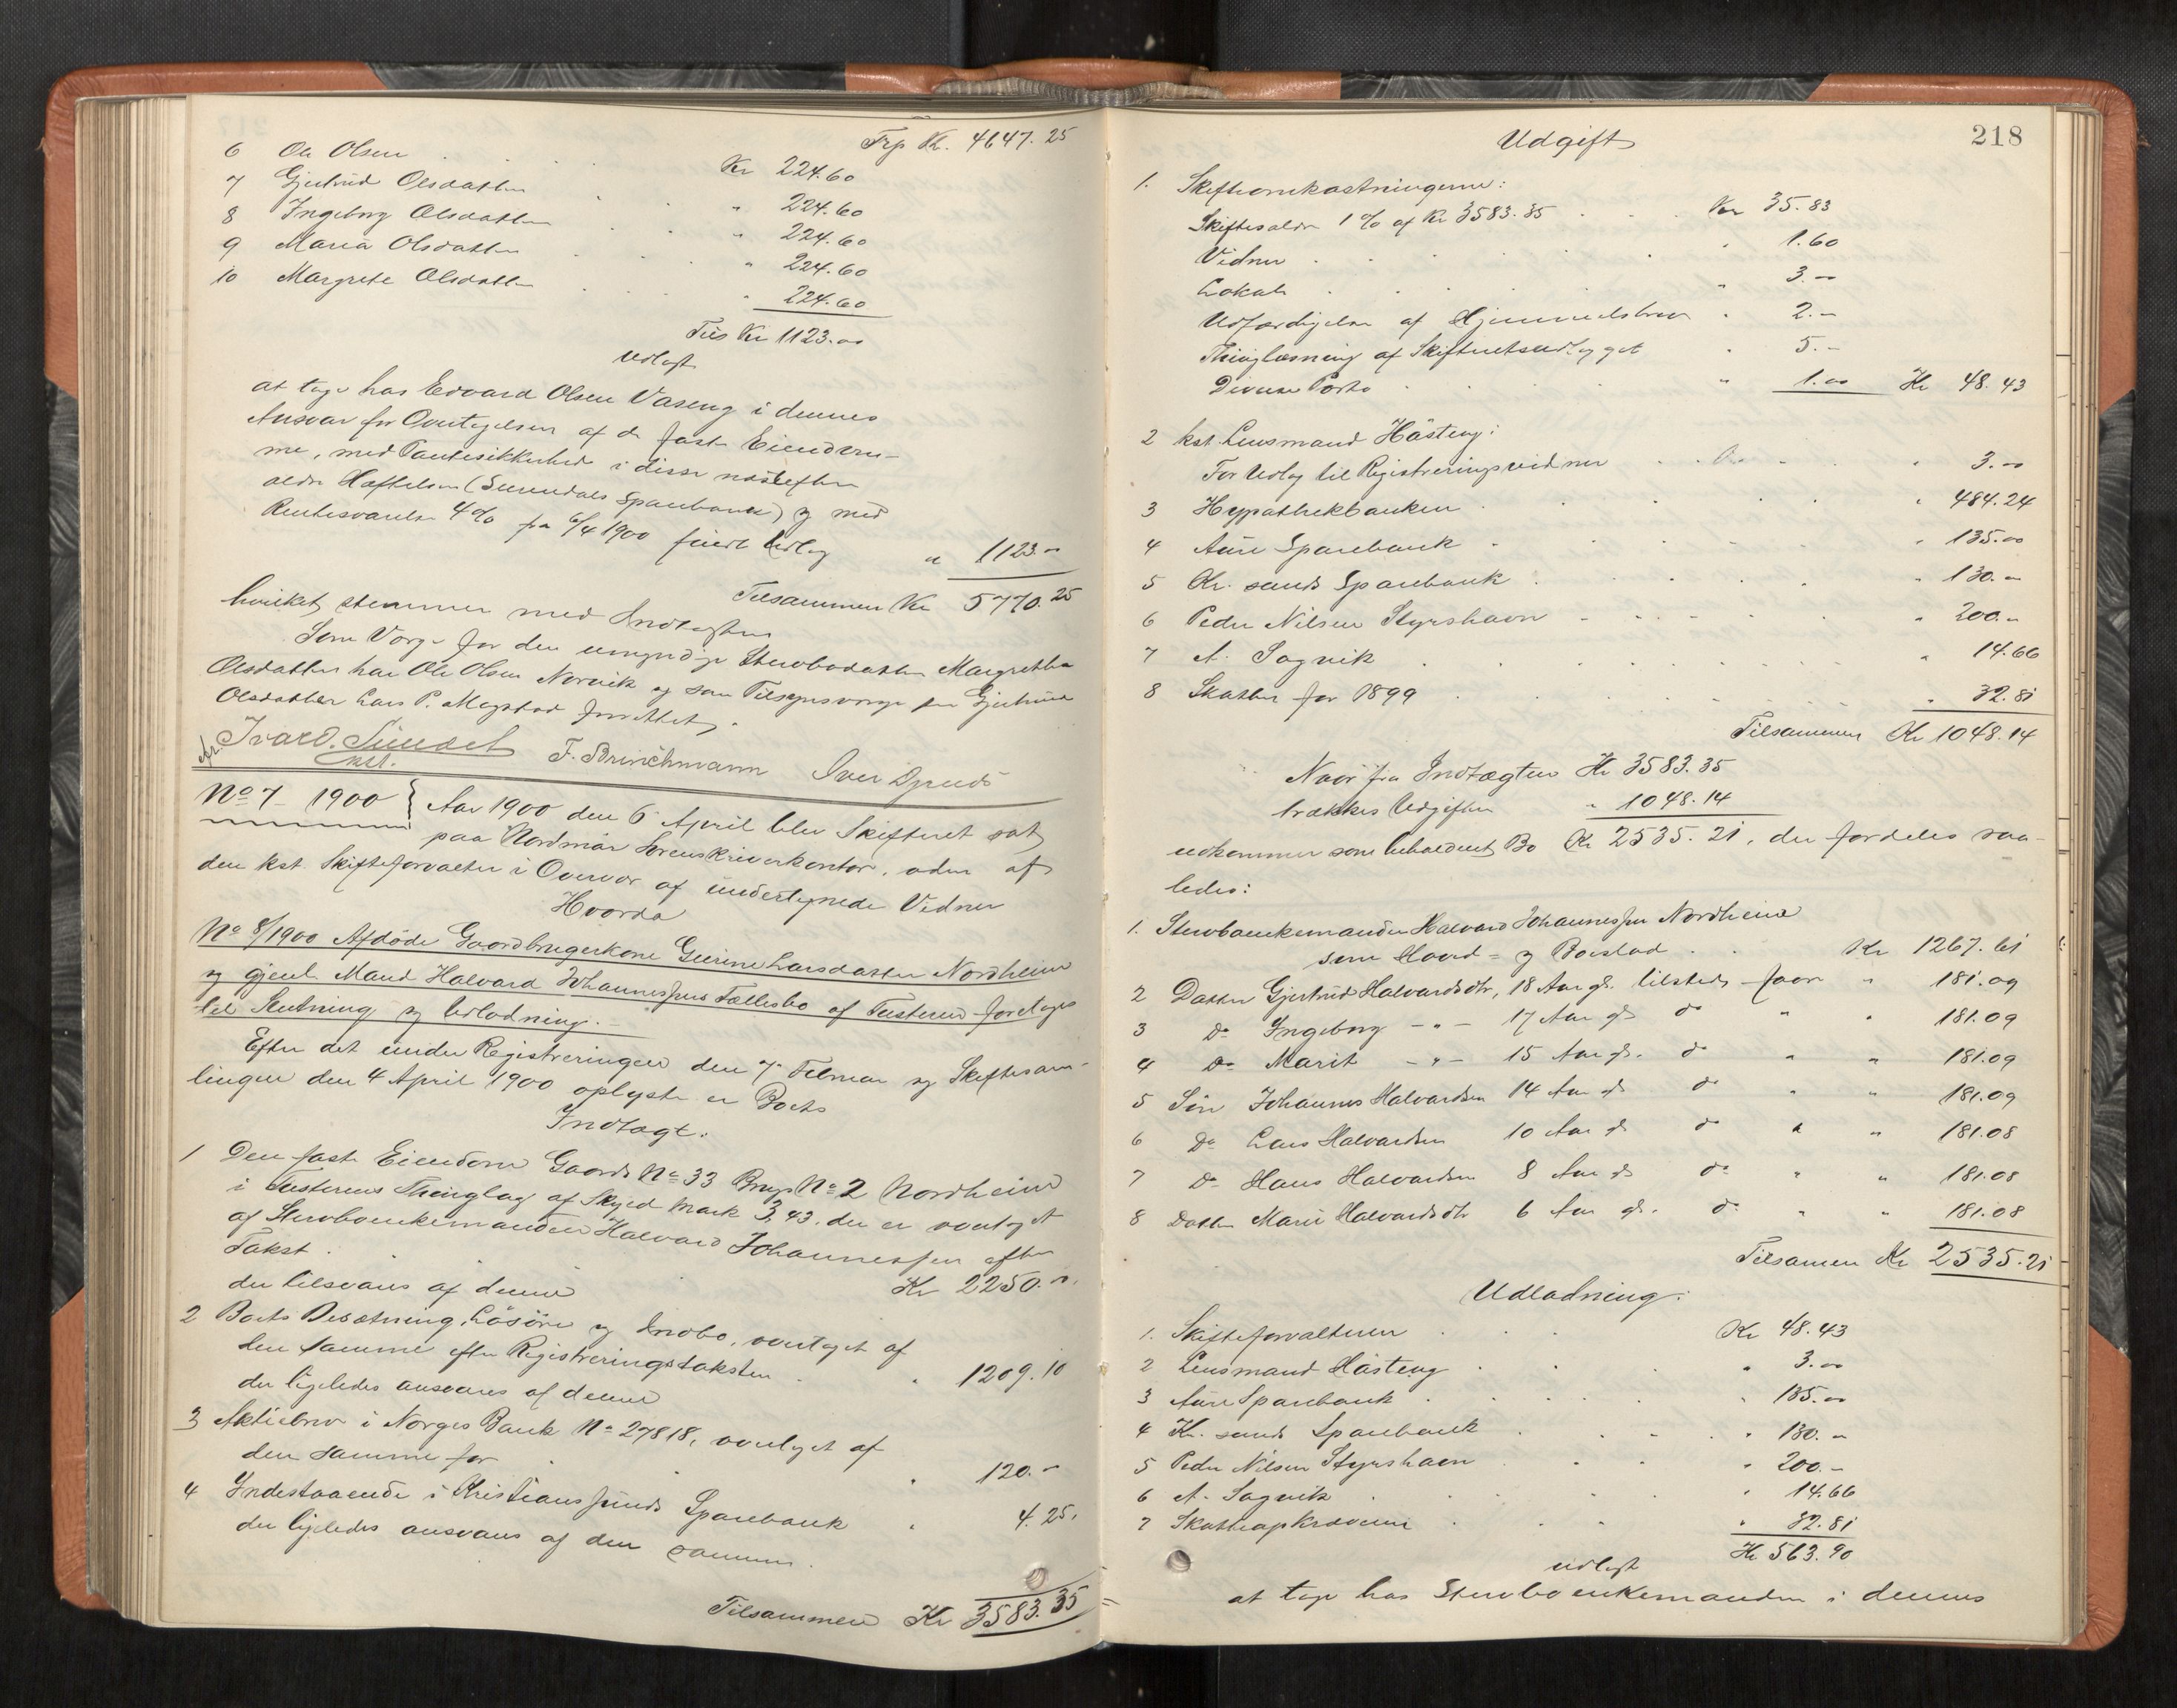 Trp Kr. 4647.25
6 Ole Olsen Kr 224.60
7 Gjertrud Olsdatter " 224.60
8 Ingeborg Olsdatter " 224.60
9 Maria Olsdatter " 224.60
10 Margrete Olsdatter " 224.60
Tils Kr 1123.00
Udlagt
at tage hos Edvard Olsen Vaseng i dennes
Ansvar for Overtagelsen af de faste Eiendom-
me, med Pantesikkerhed i disse næstefter
ældre Hæftelser (Surendals Sparebank) og med
Rentesvarelse 4% fra 6/4 1900 fuldt Udlæg " 1123.00
Tilsammen Kr 5770.25
hvilket stemmer med Indtægten
Som Værge for den umyndige Sterbodatter Margrethe
Olsdatter har Ole Olsen Norvik og som Tilsynsværge for Gjertrud
Olsdatter Lars P. Megstad fundet.
Ivar O. Sundet
kst.
F. Brinchmann Iver Dyrnes
No 7 1900 } Aar 1900 den 6 April blev Skifteret sat
paa Nordmør Sorenskriverkontor, aden af
den kst. Skifteforvalter i Overvær af undertegnede Vidner
Hvorda
No 8/1900 Afdøde Gaardbrugerkone Gurine Larsdatter Nordheim
og gjenl. Mand Halvard Johannessens Fællesbo af Tusteren foretages
til Slutning og Udlodning.
Efter det under Registreringen den 7 Februar og Skiftesam-
lingen den 4 April 1900 oplyste er Boets
Indtægt:
1 Den faste Eiendom Gaards No 33 Brugs No 2 Nordheim
i Tusterens Thinglag af Skyld Mark 3,43, der er overtaget
af Sterboenkemanden Halvard Johannessen efter
Takst
der tilsvares af denne Kr 2250.00
2 Boets Besætning, Løsøre og Indbo, overtaget af
den samme efter Registreringstaksten " 1209.10
der ligeledes ansvares af denne
3 Aktiebrev i Norges Bank No 27818, overtaget af
den samme for " 120.00
4 Indestaaende i Kristianssunds Sparebank " 4.25
der ligeledes ansvares af den samme.
Tilsammen Kr 3583.35
218
Udgift
1. Skifteomkostningerne:
Skiftesalær 1% af Kr 3583.35 Kr 35.83
Vidner " 1.60
Lokale " 3.00
Udfærdigelse af Hjemmelsbrev " 2.00
Thinglæsning af Skifteretsudlægget " 5.00
Diverse Porto " 1.00 Kr 48.43
2 kst. Lensmand Håsteng:
For Udlæg til Registreringsvidner " 3.00
3 Hypothekbanken " 484.24
4 Aure Sparebank " 135.00
5 Kr. sunds Sparebank " 130.00
6 Peder Nilsen Styrshavn " 200.00
7 A. Sagvik " 14.66
8 Skatter for 1899 " 32.81
Tilsammen Kr 1048.14
Naar fra Indtægten Kr 3583.35
trækkes Udgiften " 1048.14
udkommer som beholdent Bo Kr 2535.21, der fordeles saa-
ledes:
1. Sterboenkemanden Halvard Johannessen Nordheim
som Hoved- og Boeslod Kr 1267.61
2 Datter Gjertrud Halvardsdtr, 18 Aar gl. tilstede faar " 181.09
3 Do Ingeborg -"- 17 Aar gl. do " " 181.09
4 Do Marit -"- 15 Aar gl. do " " 181.09
5 Søn Johannes Halvardsen 14 Aar gl. do " " 181.09
6 Do Lars Halvardsen 10 Aar gl. do " " 181.08
7 Do Hans Halvardsen 8 Aar gl. do " " 181.08
8 Datter Marie Halvardsdtr 6 Aar gl. do " " 181.08
Tilsamen Kr 2535.21
Udlodning:
1. Skifteforvalteren Kr 48.43
2 Lensmand Håsteng " 3.00
3 Aure Sparebank " 135.00
4 Kr. sunds Sparebank " 130.00
5 Peder Nilsen Styrshavn " 200.00
6 A. Sagvik " 14.66
7 Skatteopkræveren " 32.81
Kr 563.90
udlagt
at tage hos Sterboenkemanden i dennes